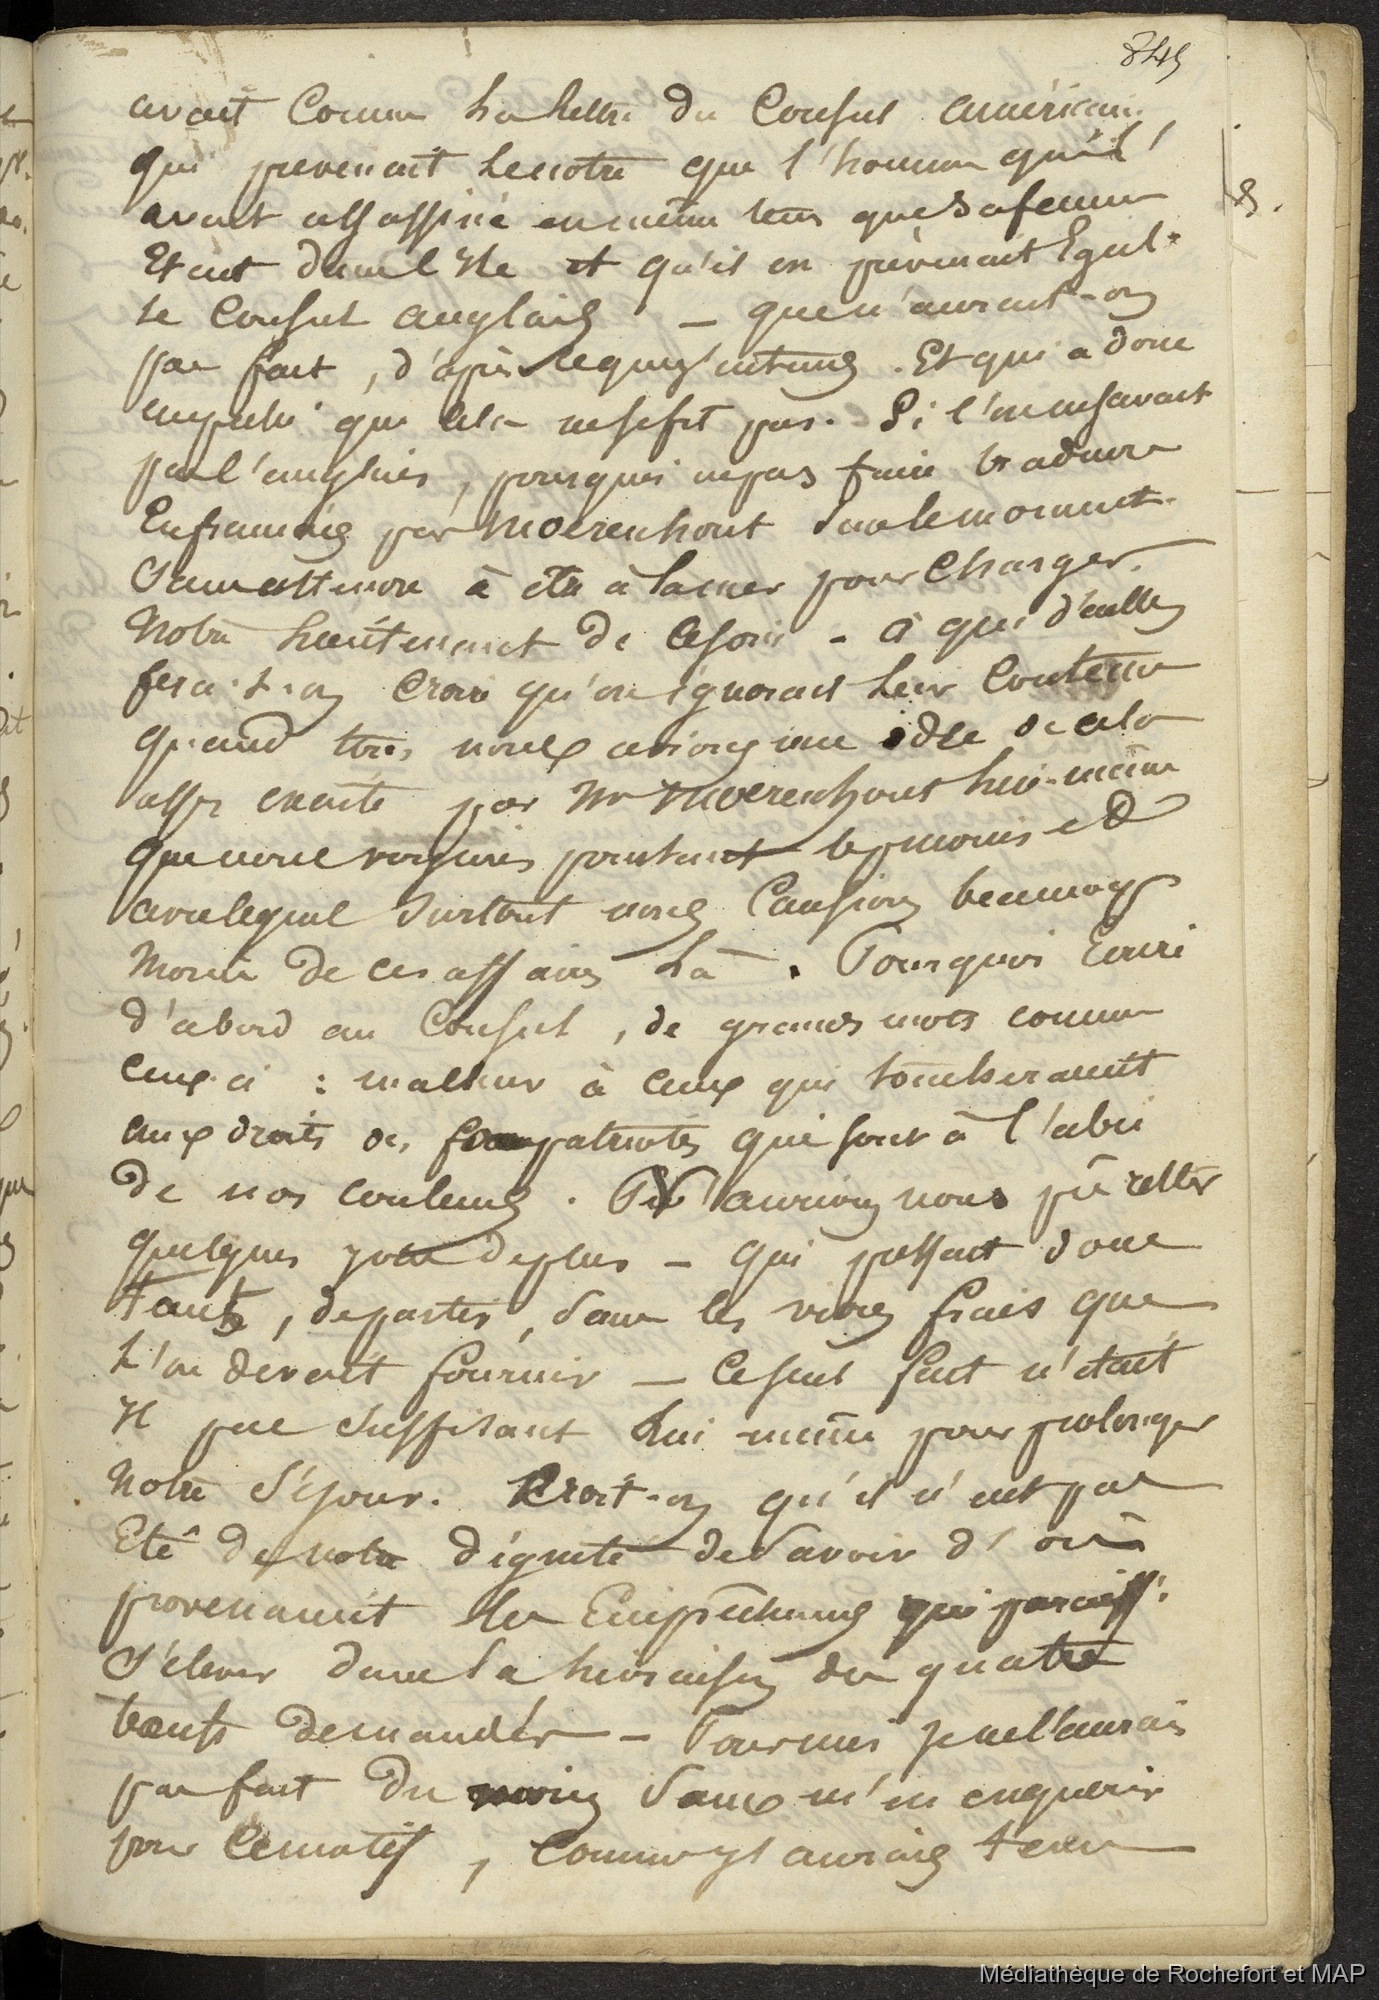 845
avait connu la lettre du Consul américain
qui prevenait le notre que l'homme qui l'
avait assassiné en même tems que sa femme
Etait dans l'Ile et qu'il en prévenait Egal.t
le Consul anglais — que n'aurait-on
pas fait, d'après
. Et qui a donc
empeché que cela ne se fit pas. Si l'on ne savait
pas l'anglais, pourquoi ne pas faire traduire
En français par Moerenhout dans le moment.
Sans attendre à être à la mer pour charger
Notre lieutenant de ce soin - à qui d'ailleurs
fera-t-on croire qu'on ignorait leur contenu
quand tous nous avions une idée de cela
assez exacte par Mr Moerenhout lui-même
que nous voyions pourtant le moins et
avec lequel surtout nous causions beaucoup
moins de ces affaires là. Pourquoi Ecrire
d'abord au Consul, de grands mots comme
ceux-ci : malheur à ceux qui toucheraient
aux droits des compatriotes qui sont à l'abri
de nos couleurs. N'aurions nous pû rester
quelques jours de plus — qui pressait donc
tant, de partir, sans les vivres frais que
l'on devait fournir — ce seul fait n'était
Il pas suffisant lui même pour prolonger
Notre Séjour. Croit-on qu'il n'eut pas
Eté de notre dignité de savoir d'où
provenaient les Empêchemens qui paraiss.t
s'élever dans la livraison des quatre
bœufs demandés — Pour moi je ne l'aurais
pas fait du moins sans m'en enquerir
pour ce motif, comme j'y aurais tenu
8.
Médiathèque de Rochefort et MAP